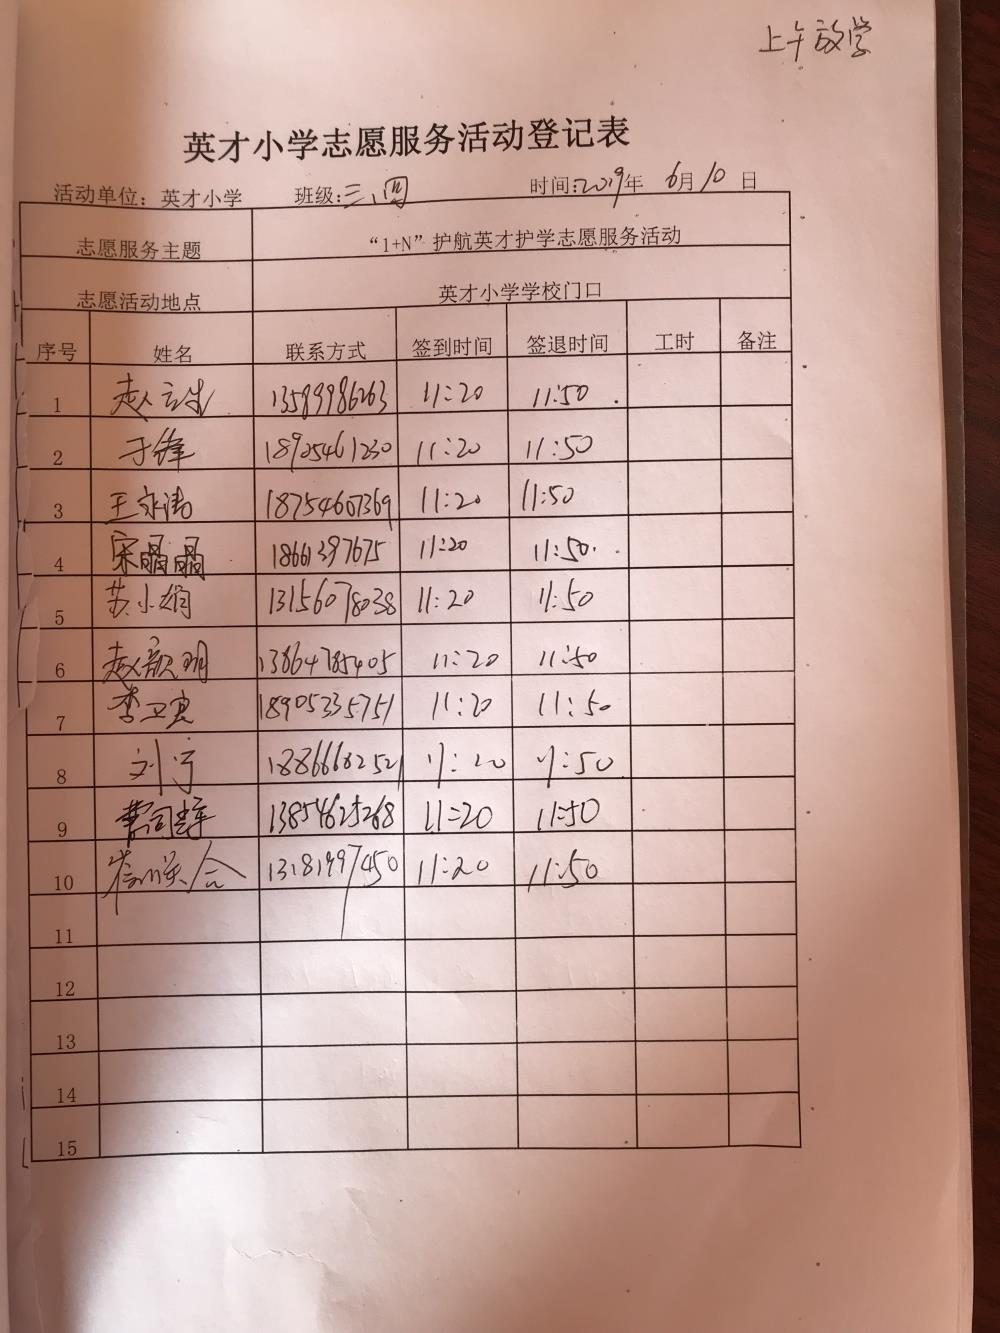 上午放学
英才小学志愿服务活动登记表
活动单位：英才小学 班级：三、四 时间：2019年 6月10 日
志愿服务主题 “1+N”护航英才护学志愿服务活动
志愿活动地点 英才小学学校门口
序号 姓名 联系方式 签到时间 签退时间 工时 备注
1 赵 13589986263 11:20 11:50
2 于锋 18905461230 11:20 11:50
3 王永涛 18754607369 11:20 11:50
4 宋晶晶 18661397675 11:20 11:50
5 苏小娟 13156078038 11:20 11:50
6 赵 明 13864785405 11:20 11:50
7 李卫 18905335751 11:20 11:50
8 刘宁 18866682521 11:20 11:50
9 曹司 13854625268 11:20 11:50
10 13181997450 11:20 11:50
11
12
13
14
15